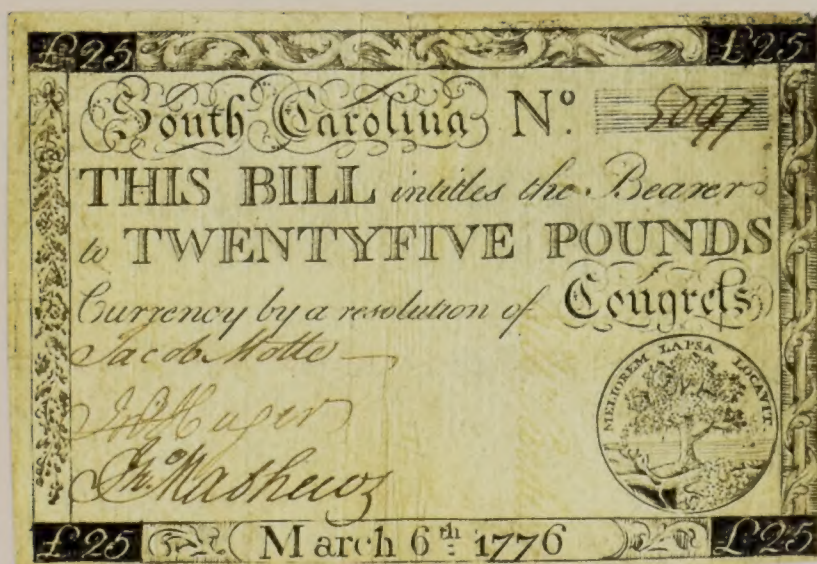 £25 £25
South Carolina Nº. 5097
THIS BILL intitles the Bearer
to TWENTYFIVE POUNDS
Currency by a resolution of Congreſs
Jacob Motte
Huger
Jnº Mathews
MELIOREM LAPSA LOCAVIT.
£25 March 6th 1776 £25